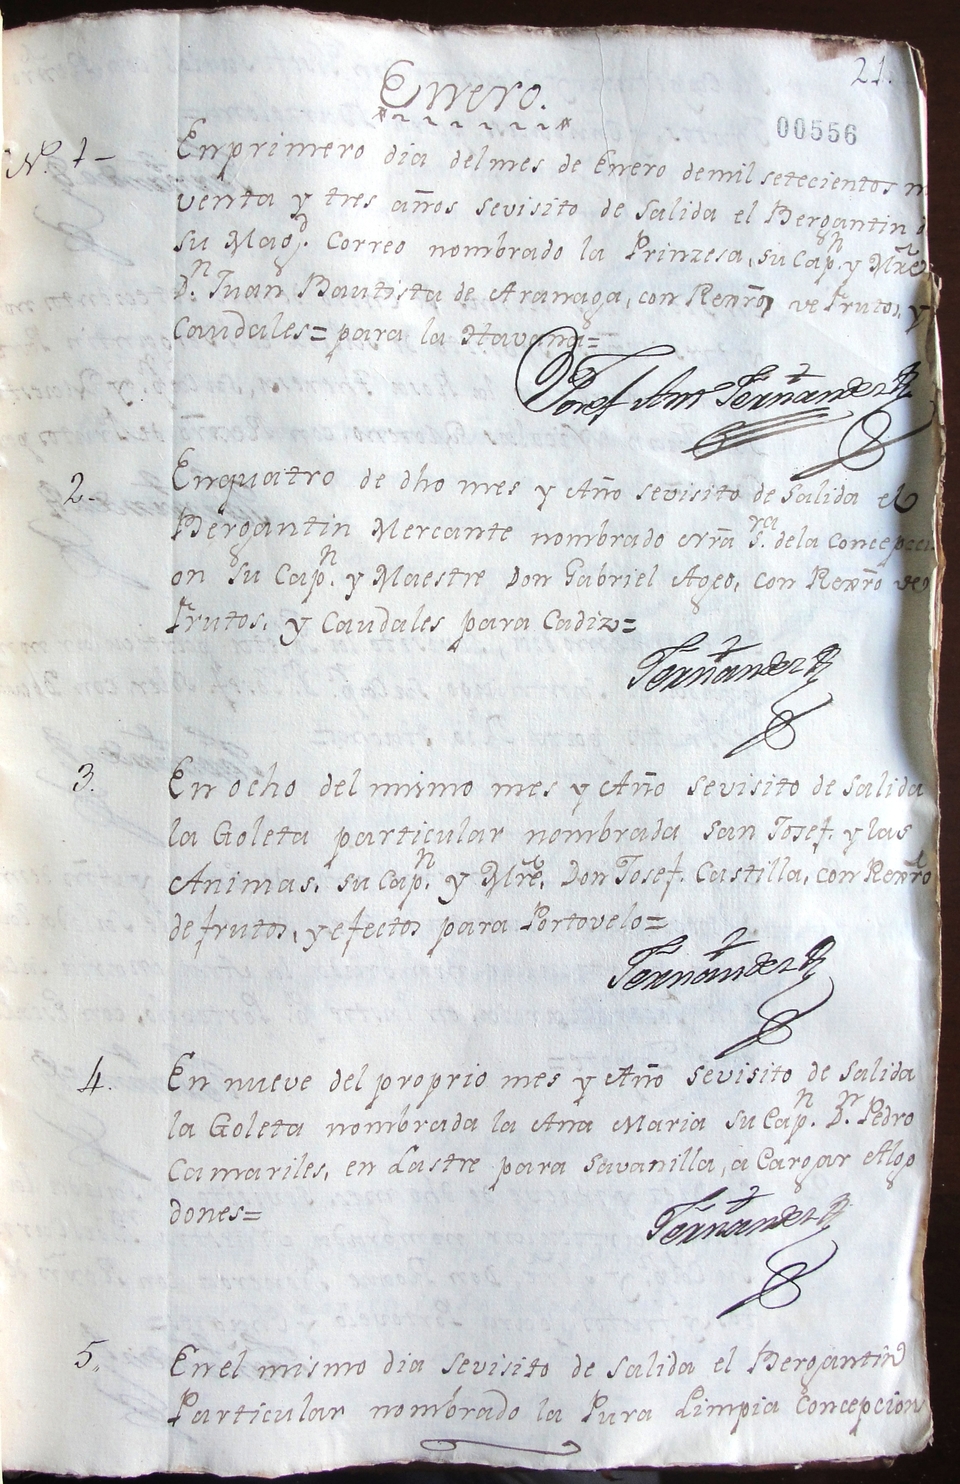 21.
Enero.
00556
N.º 1-
En primero dia del mes de Enero de mil setecientos no
venta y tres años se visito de Salida el Bergantin d
su Magd. Correo nombrado la Prinzesa, su Capn. y Mre
Dn. Juan Bautista de Aranaga, con Renro ve frutos, y
Caudales= para la Havana=
Josef Anto Fernandez
2-
En quatro de dho mes y Año se visito de Salida el
Bergantin Mercante nombrado nra Sra. de la Concepci
on su Capn. y Maestre Don Gabriel Ageo, con Renro ve
frutos, y Caudales para Cadiz=
Fernandez
3.
En ocho del mismo mes y Año se visito de Salida
la Goleta particular nombrada San Josef. y las
Animas, su Capn. y Mre. Don Josef. Castilla, con Renro
de frutos, y efectos para Portovelo=
Fernandez
4.
En nueve del proprio mes y Año se visito de Salida
la Goleta nombrada la Ana Maria su Capn. Dn. Pedro
Camariles, en Lastre para Savanilla, a Cargar Algo
dones=
Fernandez
5.
En el mismo dia se visito de Salida el Bergantin
Particular nombrado la Pura Limpia Concepcion